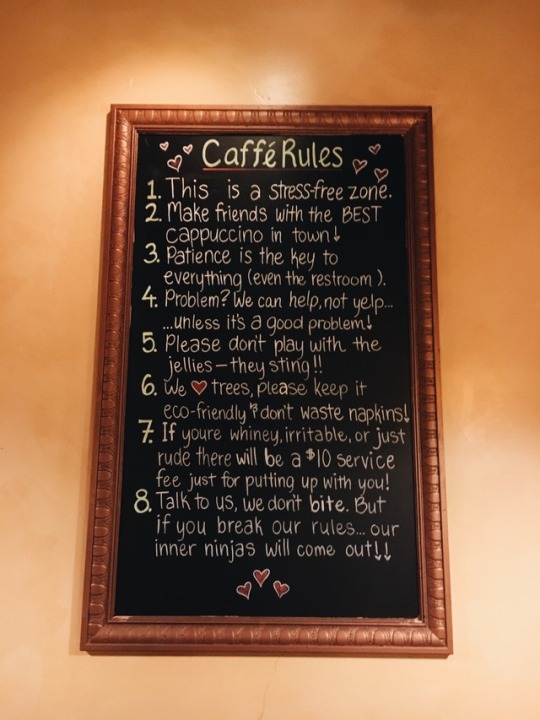 Caffé Rules
1. This is a stress-free zone.
2. Make friends with the BEST
cappuccino in town!
3. Patience is the key to
everything (even the restroom).
4. Problem? We can help, not yelp...
...unless it's a good problem!
5. Please don't play with the
jellies – they sting!!
6. We ♥ trees, please keep it
eco-friendly & don't waste napkins!
7. If youre whiney, irritable, or just
rude there will be a $10 service
fee just for putting up with you!
8. Talk to us, we don't bite. But
if you break our rules... our
inner ninjas will come out!!